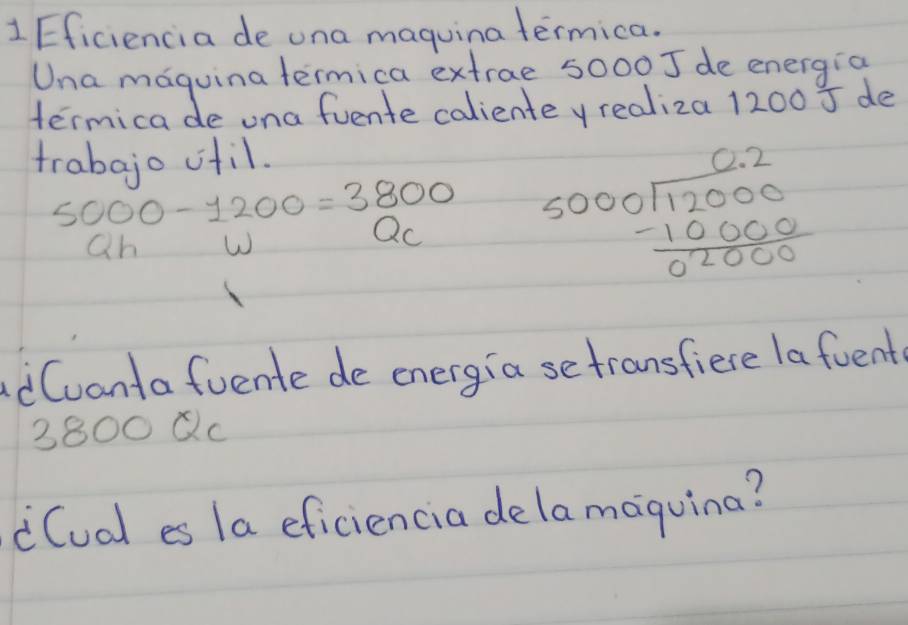 1 Eficiencia de una maquina térmica.
Una máquina térmica extrae 5000 J de energía
térmica de una fuente caliente y realiza 1200 J de
trabajo útil.
5000 - 1200 = 3800
Qh W Qc
0.2
5000 12000
-10000
02000
¿Cuanta fuente de energía se transfiere la fuent
3800 Qc
¿Cual es la eficiencia de la máquina?